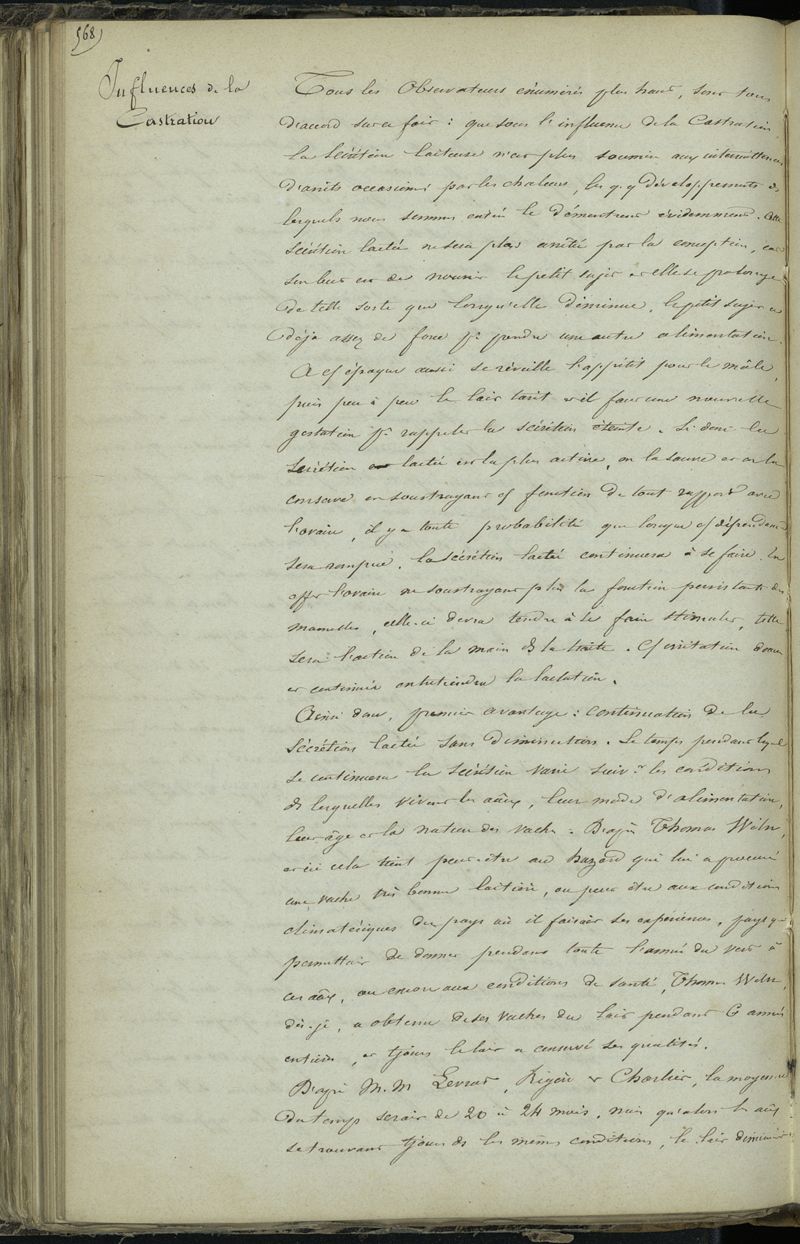 568
Influences de la
Castration
Tous les Observateurs énumérés plus haut, sont tous
d'accord sur ce fait : que sous l'influence de la Castration
la sécrétion laiteuse n'est plus soumise aux intermittences
d'arrêts occasionnés par les chaleurs, les
lesquels nous sommes entré le démontrent évidemment. Cette
sécrétion lactée ne sera plus arrêtée par la conception, car
son but est de nourrir le petit sujet et elle se prolonge
de telle sorte que lorsqu'elle diminue, le petit sujet a
déjà assez de force pr prendre une autre alimentation.
A cf époque aussi se réveille l'appétit pour le mâle,
puis peu à peu le lait tarit et il faut une nouvelle
gestation pr rappeler la sécrétion éteinte. Si donc la
sécrétion lactée est la plus active, on la sauve et on la
conserve en soustrayant cf fonction de tout rapport avec
l'ovaire, il y a toute probabilité que lorsque cf dépendance
sera rompue, la sécrétion lactée continuera à se faire. En
effet l'ovaire ne soustrayant plus la fonction persistante des
mamelles, celle-ci devra tendre à le faire stimuler, telle
sera l'action de la main ds la traite. Cf irritation douce
et continuée entretiendra la lactation.
Ainsi donc, premier avantage : continuation de la
sécrétion lactée sans diminution. Le temps pendant lequel
se continuera la sécrétion varie suivt les conditions
ds lesquelles vivent les aâux, leur mode d'alimentation,
leur âge et la nature des vaches. D'après Thomas Winn,
et ici cela tient peut-être au hazard qui lui a procuré
une vache très bonne laitière, ou peut être aux conditions
climatériques du pays où il faisait ses expériences, pays qui
permettait de donner pendant toute l'année du vert à
ces aâux, ou encore aux conditions de santé, Thomas Winn,
dis-je, a obtenu de ses vaches du lait pendant 6 années
entières, et tjours le lait a conservé ses qualités.
D'après M.M Levrat, Régère et Charlier, la moyenne
du temps serait de 20 à 24 mois, mais qu'alors les aâux
se trouvant tjours ds les mêmes conditions, le lait diminue